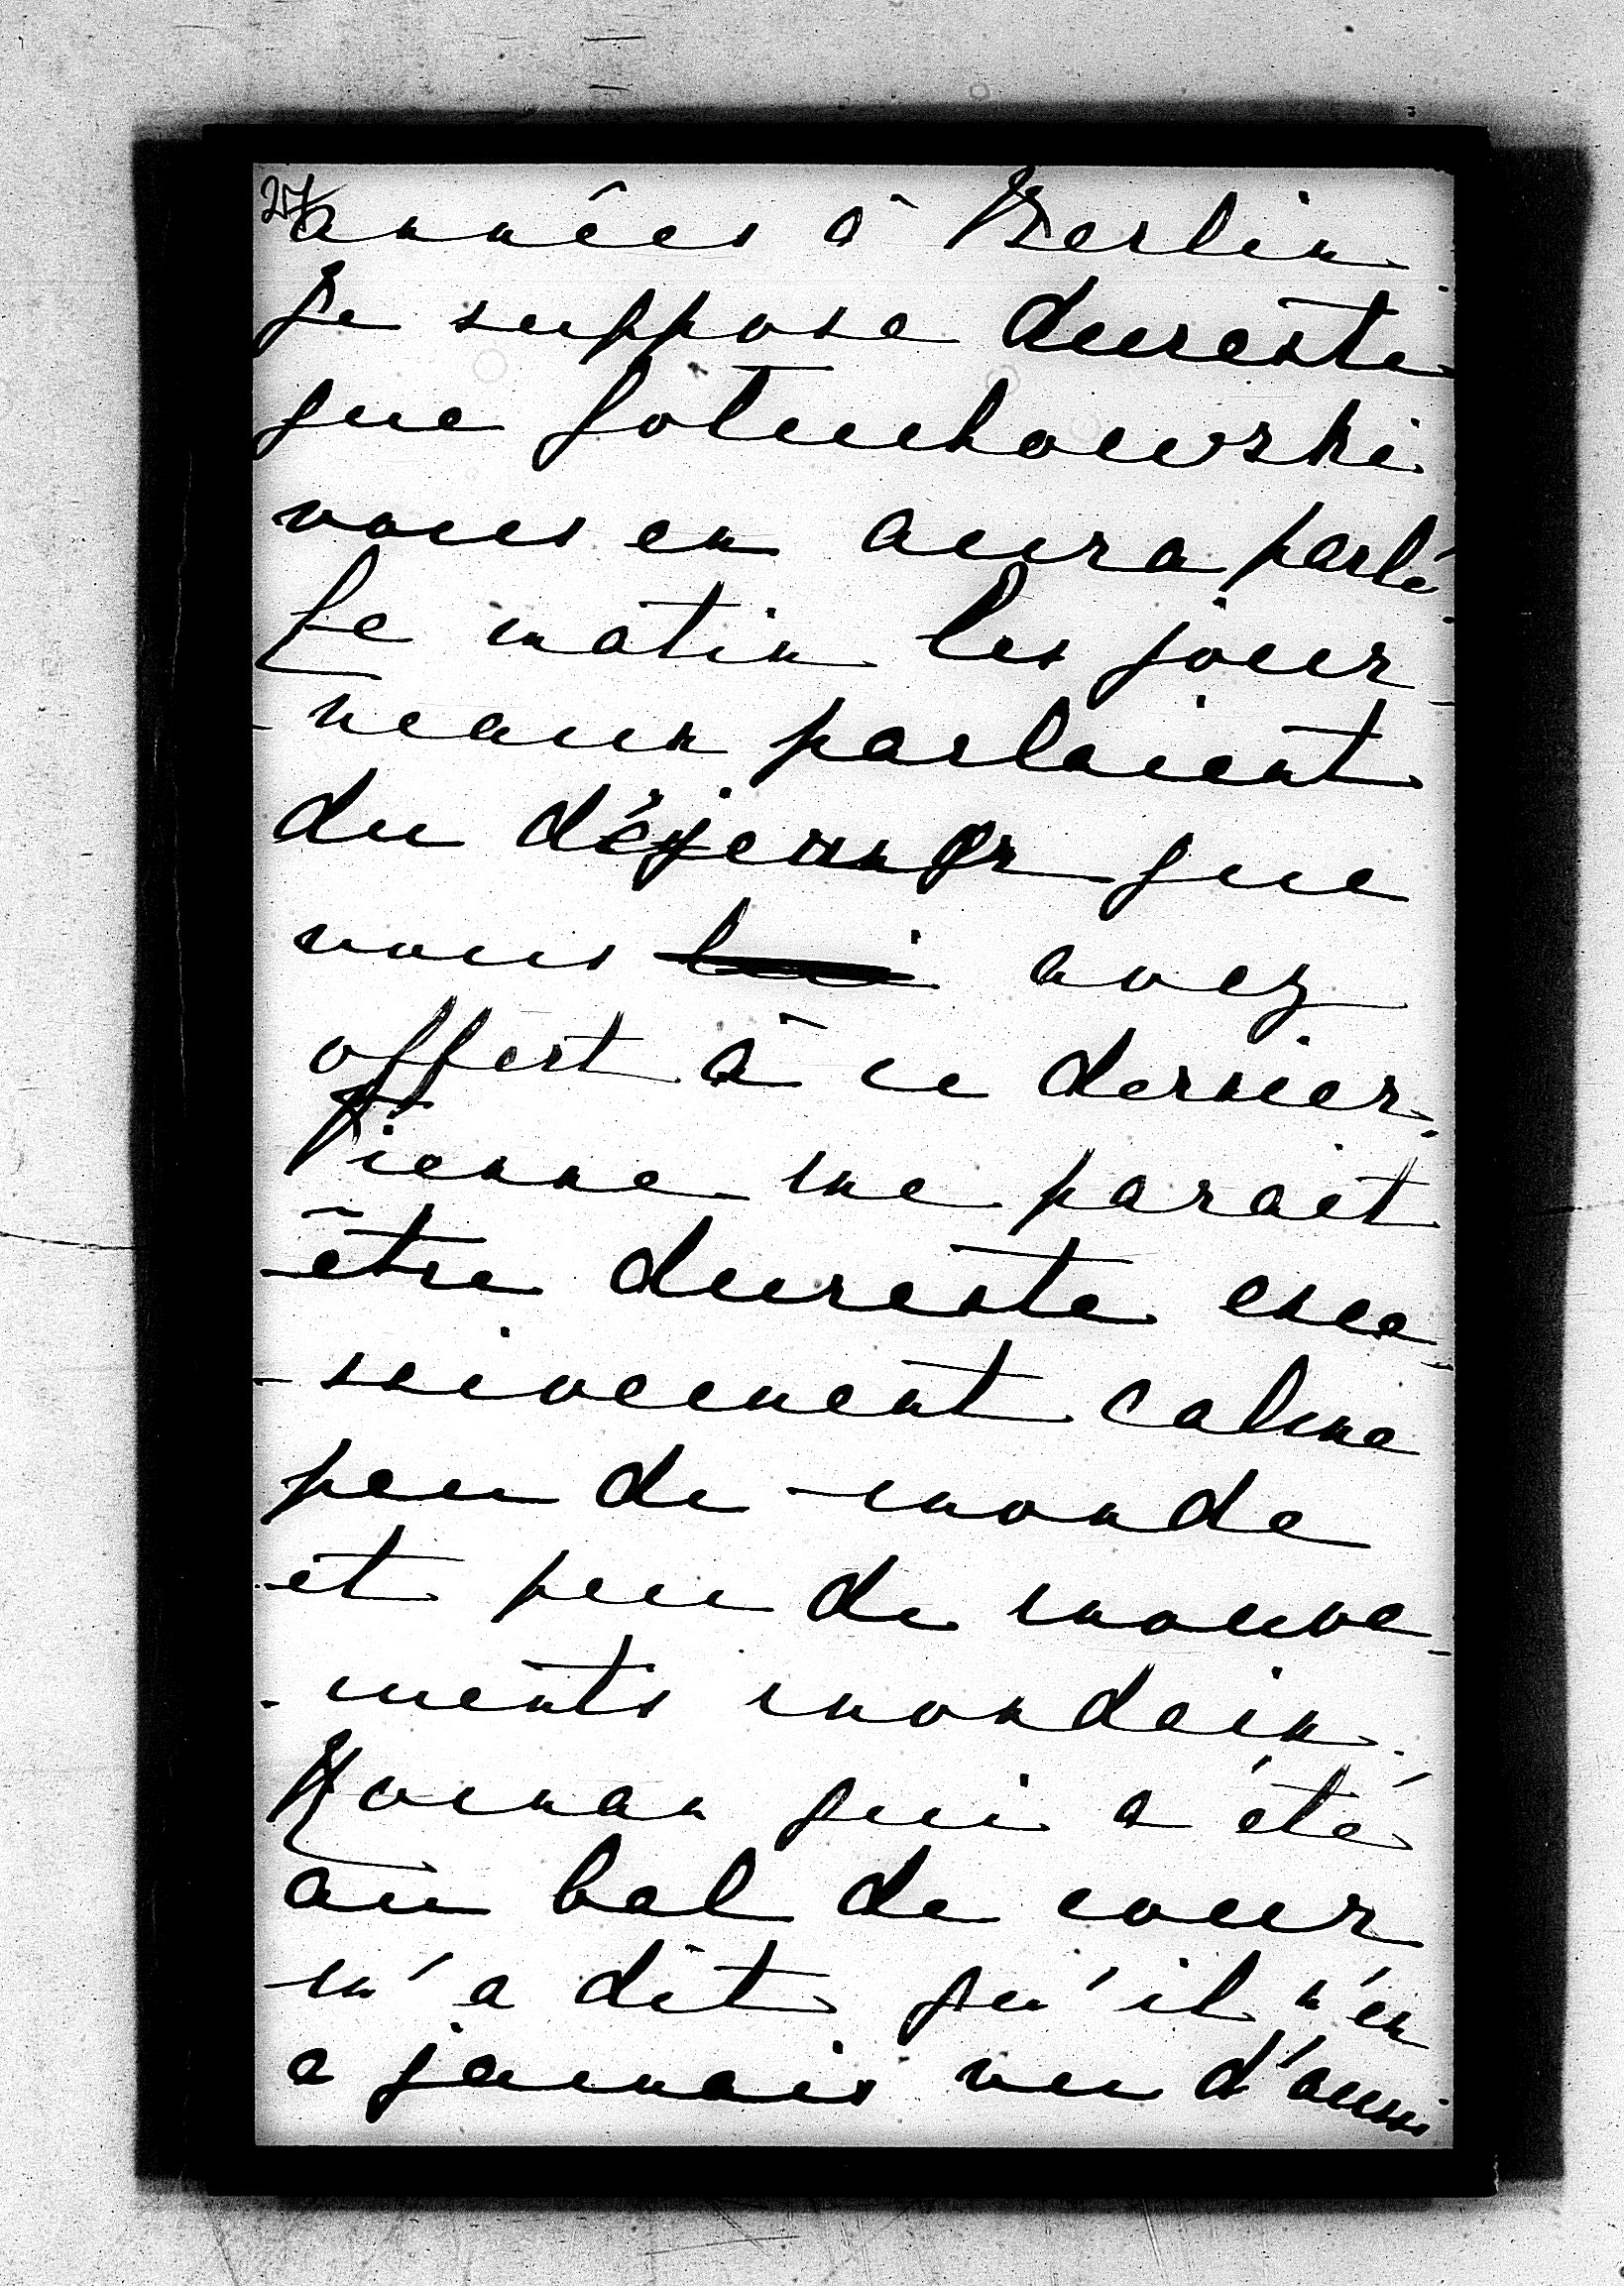 27
années à Berlin.
Je suppose dureste
que Goluchowski
vous en aura parlé.
Ce matin les jour-
-neaux parlaient
du déjeuner que
vous lui avez
offert à ce dernier.
Vienne me parait
être dureste exce-
-ssivement calme
peu de monde
et peu de mouve-
-ments mondain.
qui a été
au bal de cour
m'a dit qu'il n'en
a jamais vu d'aussi